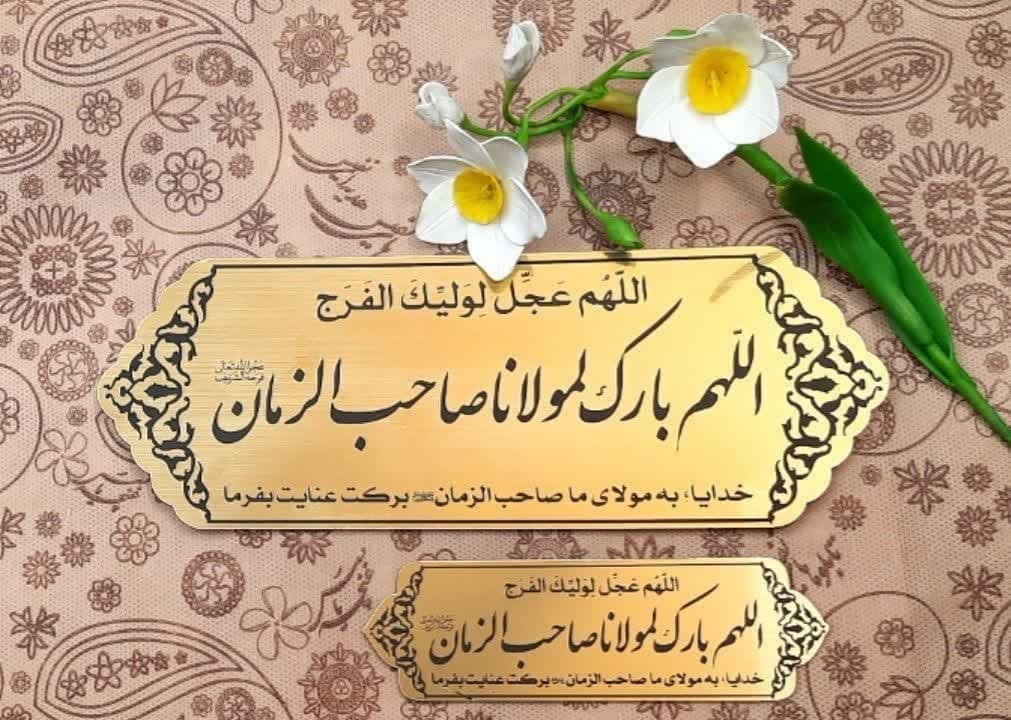 اللّهُم عَجِّل لِوَلیِّکَ الفَرَج
اللّهم بارک لمولانا صاحب الزمان
عجل الله تعالی
فرجه الشریف
خدایا، به مولای ما صاحب الزمان برکت عنایت بفرما
اللّهُم عَجِّل لِوَلیِّکَ الفَرَج
اللهم بارک لمولانا صاحب الزمان
خدایا، به مولای ما صاحب الزمان برکت عنایت بفرما